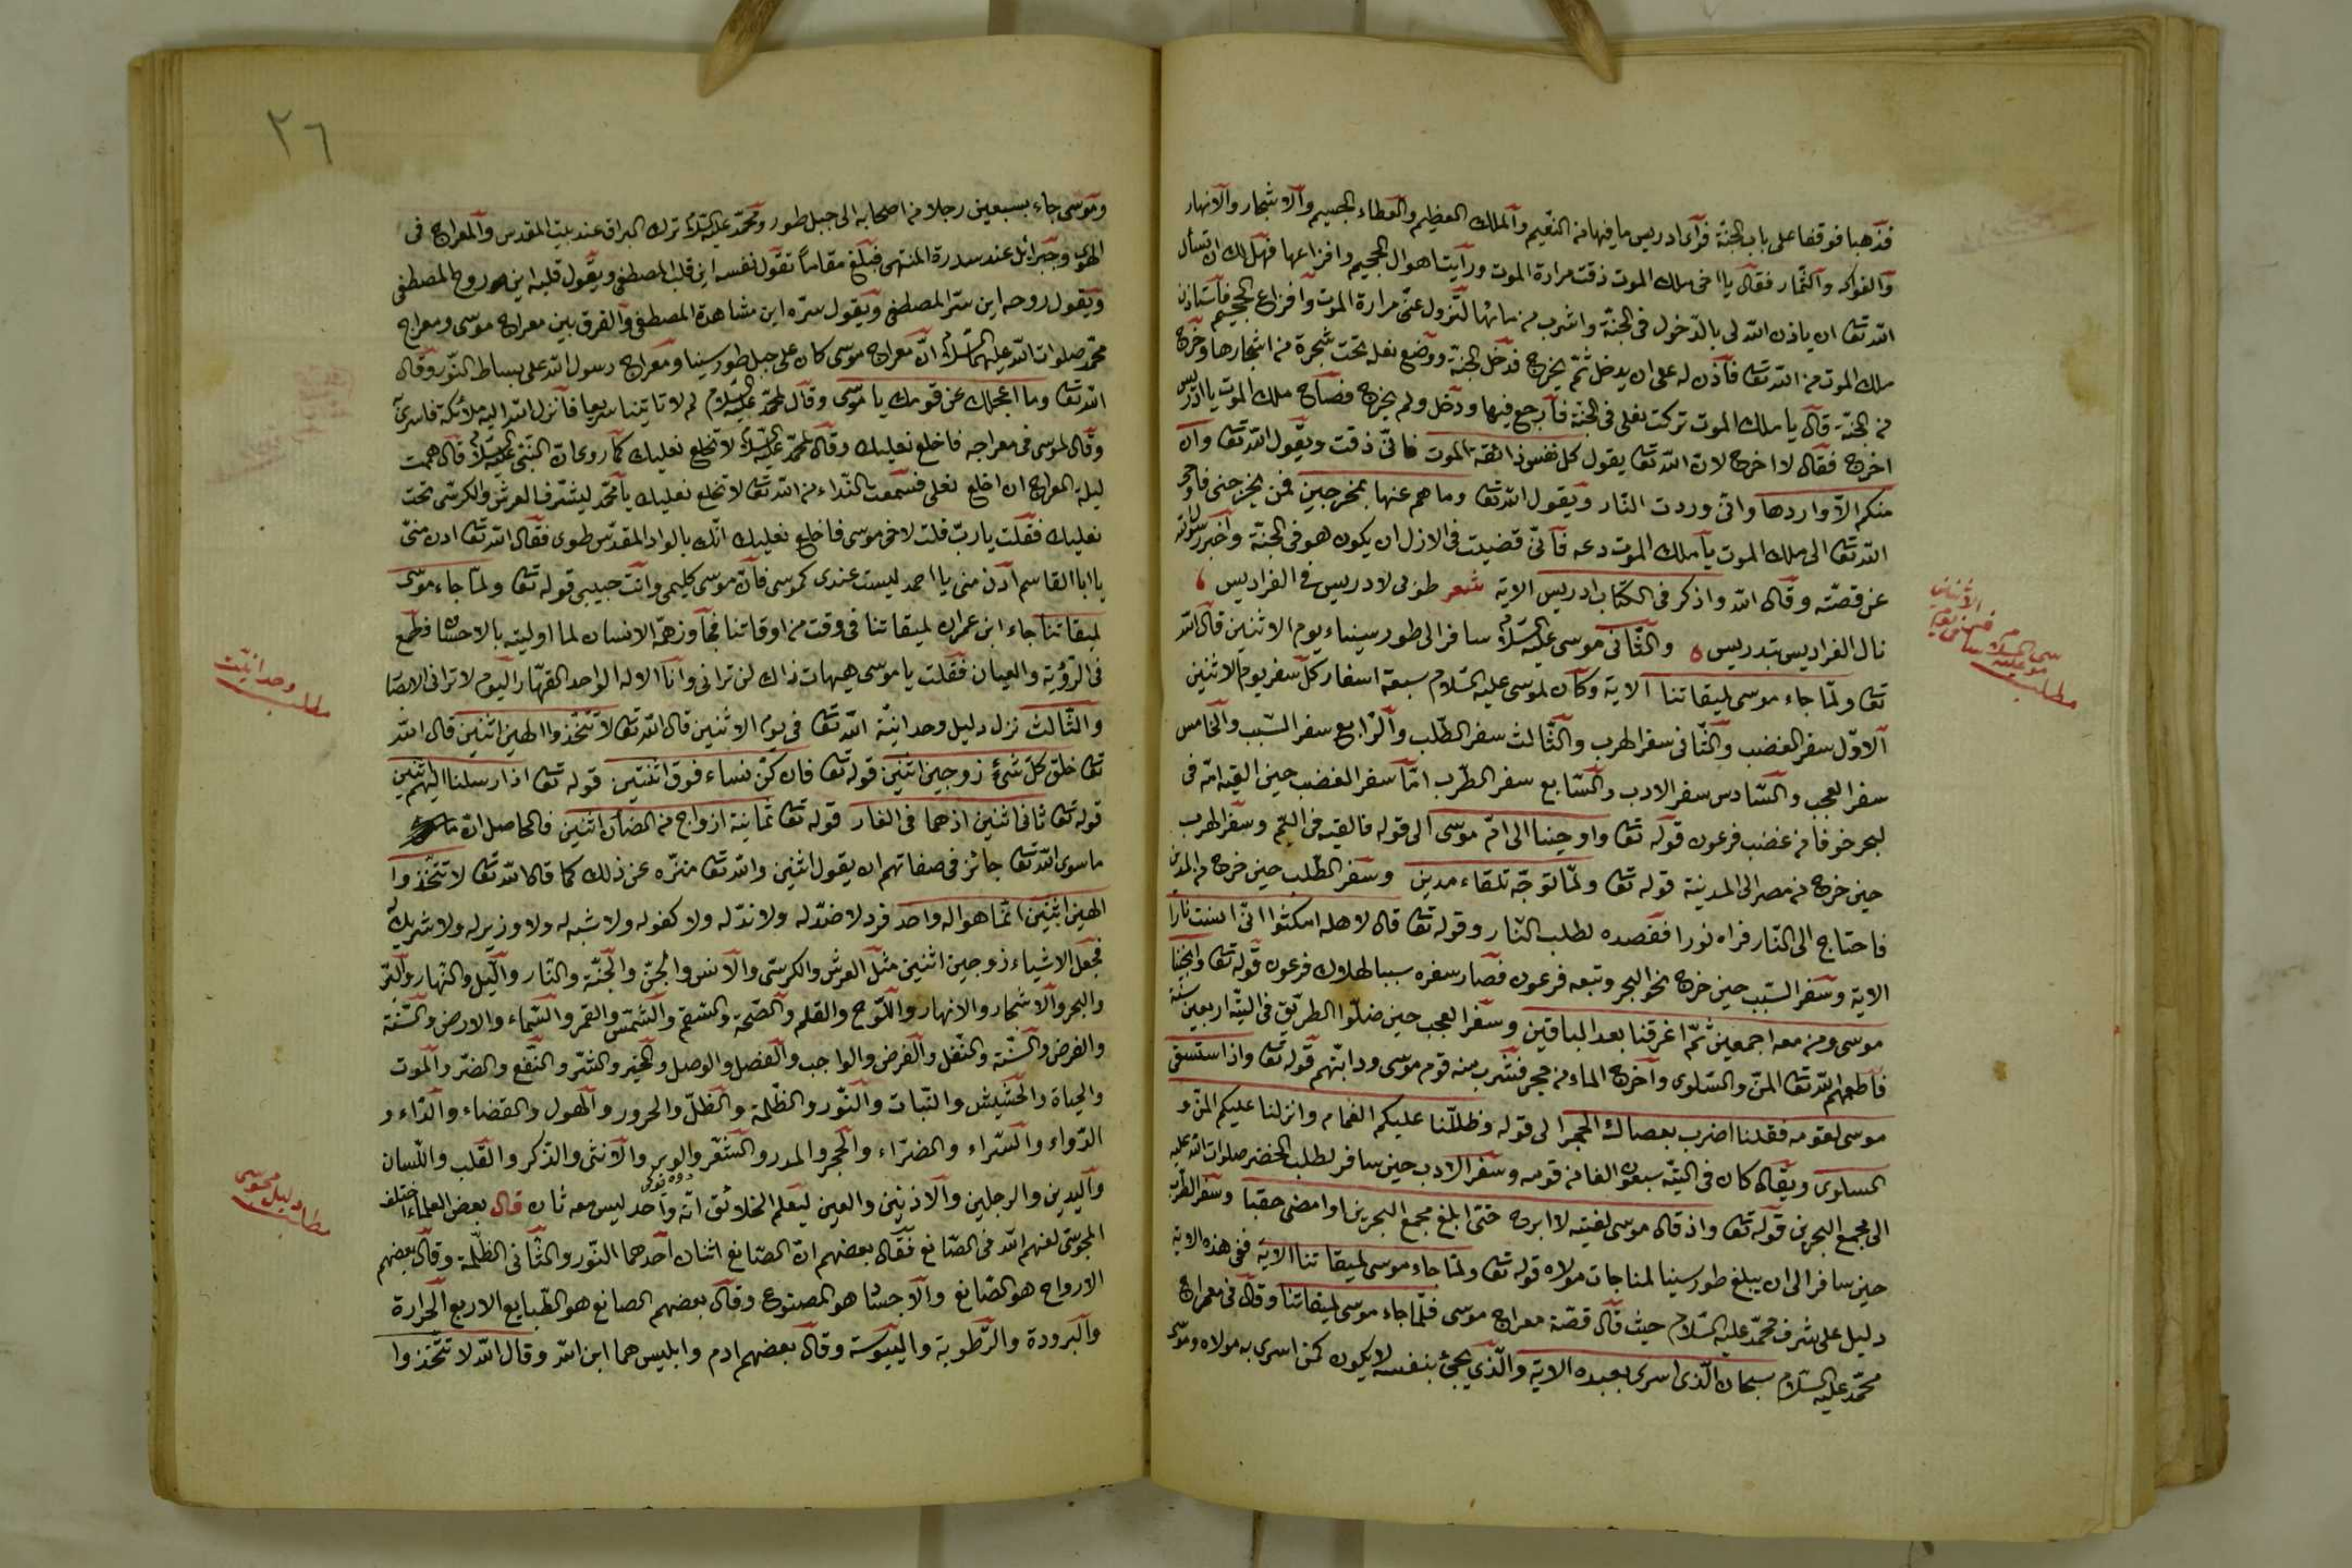 فذهبا فوقفا على باب الجنة فرأى ادريس ما فيها من النعيم والملك العظيم والعطاء الجسيم والاشجار والانهار
والفواكه والثمار فقال يا اخى ملك الموت ذقت مرارة الموت ورأيت اهوال الجحيم وافزاعها فهل لك ان تسأل
الله تعا ان ياذن الله لى بالدخول فى الجنة واشرب من مائها لتزول عنى مرارة الموت وافزاع الجحيم فاستاذن
ملك الموت من الله تعا فاذن له على ان يدخل ثم يخرج فدخل الجنة ووضع نعله تحت شجرة من اشجارها وخرج
من الجنة قال يا ملك الموت تركت نعلى فى الجنة فارجع فيها ودخل ولم يخرج فصاح ملك الموت يا ادريس
اخرج فقال لا اخرج لان الله تعا يقول كل نفس ذائقة الموت فانى ذقت ويقول الله تعا وان
منكم الا واردها وانى وردت النار ويقول الله تعا وما هم عنها بمخرجين فمن يخرجنى فاوحى
الله تعا الى ملك الموت يا ملك الموت دعه فانى قضيت فى الازل ان يكون هو فى الجنة واخبر رسوله
عن قصته وقال الله واذكر فى الكتاب ادريس الاية شعر طوبى لادريس فى الفراديس
نال الفراديس بتدريس والثانى موسى عليه السلام سافر الى طور سيناء يوم الاثنين قال الله
تعا ولما جاء موسى لميقاتنا الاية وكان لموسى عليه السلام سبعة اسفار كل سفر يوم الاثنين
الاول سفر الغضب والثانى سفر الهرب والثالث سفر الطلب والرابع سفر السبب والخامس
سفر العجب والسادس سفر الادب والسابع سفر الطرب اما سفر الغضب حين القيه امه فى
لبحر خوفا من غضب فرعون قوله تعا واوحينا الى ام موسى الى قوله فالقيه فى اليم وسفر الهرب
حين خرج من مصر الى المدينة قوله تعا ولما توجه تلقاء مدين وسفر الطلب حين خرج من المدين
فاحتاج الى النار فراه نورا فقصده لطلب النار وقوله تعا قال لاهله امكثوا انى انست نارا
الاية وسفر السبب حين خرج نحو البحر وتبعه فرعون فصار سفره سببا لهلاك فرعون قوله تعا وانجينا
موسى ومن معه اجمعين ثم اغرقنا بعد الباقين وسفر العجب حين ضلوا الطريق فى التيه اربعين سنة
فاطعمهم الله تعا المن والسلوى واخرج الماء من حجر فشرب منه قوم موسى ودابتهم قوله تعا واذا استسقى
موسى لقومه فقلنا اضرب بعصاك الحجر الى قوله وظللنا عليكم الغمام وانزلنا عليكم المن و
السلوى ويقال كان فى التيه سبعون الفا من قومه وسفر الادب حين سافر لطلب الخضر صلوات الله عليه
الى مجمع البحرين قوله تعا واذ قال موسى لفتيه لا ابرح حتى ابلغ مجمع البحرين او امضى حقبا وسفر الطرب
حين سافر الى ان يبلغ طور سينا لمناجات مولاه قوله تعا ولما جاء موسى لميقاتنا الاية ففى هذه الاية
دليل على شرف محمد عليه السلام حيث قال قصة معراج موسى فلما جاء موسى لميقاتنا وقال فى معراج
محمد عليه السلام سبحان الذى اسرى بعبده الاية والذى يجئ بنفسه لا يكون كمن اسرى به مولاه وموسى
مطلب
موسى عليه السلام
الاثنين
٢٦
وموسى جاء بسبعين رجلا من اصحابه الى جبل طور ومحمد عليه السلام ترك البراق عند بيت المقدس والمعراج فى
الهوى وجبرائل عند سدرة المنتهى فبلغ مقاما تقول نفسه اين قلب المصطفى ويقول قلبه اين روح المصطفى
ويقول روحه اين سر المصطفى ويقول سره اين مشاهدة المصطفى والفرق بين معراج موسى ومعراج
محمد صلوات الله عليهما السلام ان معراج موسى كان على جبل طور سينا ومعراج رسول الله على بساط النور وقال
الله تعا وما اعجلك عن قومك يا موسى وقال لمحمد عليه السلام لم لا تاتينا سريعا فانزل الله اليه ملائكة فاسرى
وقال لموسى فى معراجه فاخلع نعليك وقال لمحمد عليه السلام لا تخلع نعليك كما روى ان النبى عليه السلام قال هممت
ليلة المعراج ان اخلع نعلى فسمعت النداء من الله تعا لا تخلع نعليك يا محمد ليشرف العرش والكرسى تحت
نعليك فقلت يا رب قلت لاخى موسى فاخلع نعليك انك بالواد المقدس طوى فقال الله تعا ادن منى
يا ابا القاسم ادن منى يا احمد ليست عندى كموسى فان موسى كليمى وانت حبيبى قوله تعا ولما جاء موسى
لميقاتنا جاء ابن عمران لميقاتنا فى وقت من اوقاتنا فجاوز همة الانسان لما اوليته بالاحسان فطمع
فى الرؤية والعيان فقلت يا موسى هيهات ذاك لن ترانى وانا الاله الواحد القهار اليوم لا ترانى الابصا
والثالث نزل دليل وحدانية الله تعا فى يوم الاثنين قال الله تعا لا تتخذوا الهين اثنين قال الله
تعا خلق كل شئ زوجين اثنين قوله تعا فان كن نساء فوق اثنتين قوله تعا اذ ارسلنا اليهم اثنين
قوله تعا ثانى اثنين اذ هما فى الغار قوله تعا ثمانية ازواج من الضان اثنين فالحاصل ان
ما سوى الله تعا جائز فى صفاتهم ان يقول اثنين والله تعا منزه عن ذلك كما قال الله تعا لا تتخذوا
الهين اثنين انما هو اله واحد فرد لا ضد له ولا ند له ولا كفو له ولا شبه له ولا وزير له ولا شريك له
فجعل الاشياء زوجين اثنين مثل العرش والكرسى والانس والجن والجنة والنار والليل والنهار والبر
والبحر والاشجار والانهار واللوح والقلم والصحة والسقم والشمس والقمر والسماء والارض والسنة
والفرض والسنة والنفل والفرض والواجب والفصل والوصل والخير والشر والنفع والضر والموت
والحياة والحشيش والنبات والنور والظلمة والظل والحرور والهول والقضاء والداء و
الدواء والسراء والضراء والحجر والمدر والشعر والوبر والانثى والذكر والقلب واللسان
واليدين والرجلين والاذنين والعين ليعلم الخلائق انه واحد ليس معه ثان قال بعض العلماء اختلف
المجوسى لعنهم الله فى الصانع فقال بعضهم ان الصانع اثنان احدهما النور والثانى الظلمة وقال بعضهم
الارواح هو الصانع والاجسا هو المصنوع وقال بعضهم الصانع هو الطبايع الاربع الحرارة
والبرودة والرطوبة واليبوسة وقال بعضهم ادم وابليس هما ابن الله وقال الله لا تتخذوا
مطلب وحدانيت
مطلب دليل مجوسى